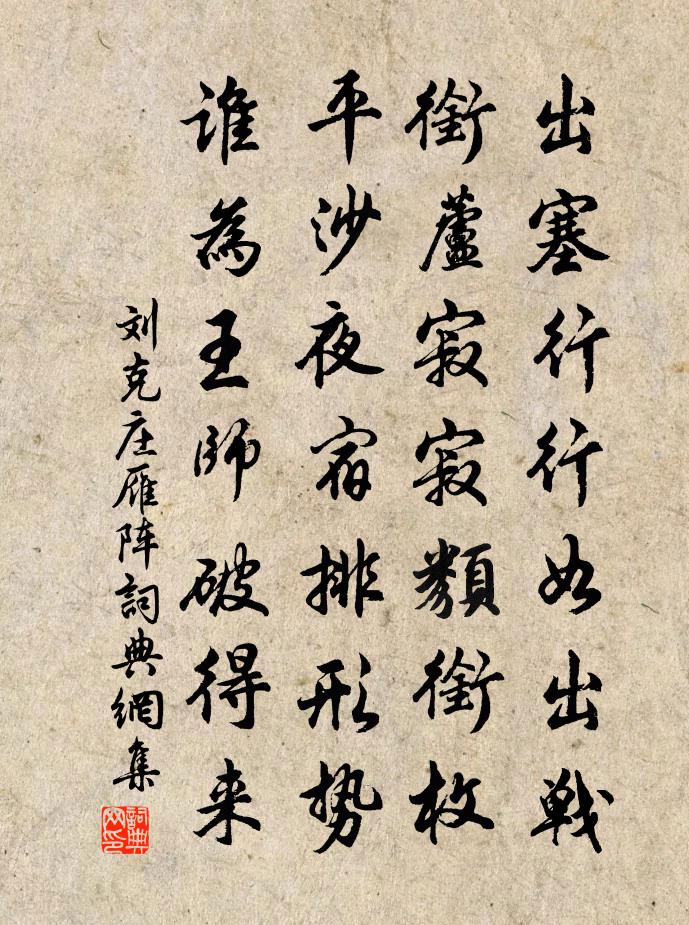 出塞行行如出戰
銜蘆寂寂類銜枚
平沙夜宿排形勢
誰為王師破得来
刘克庄雁阵詞典網集
詞典网印